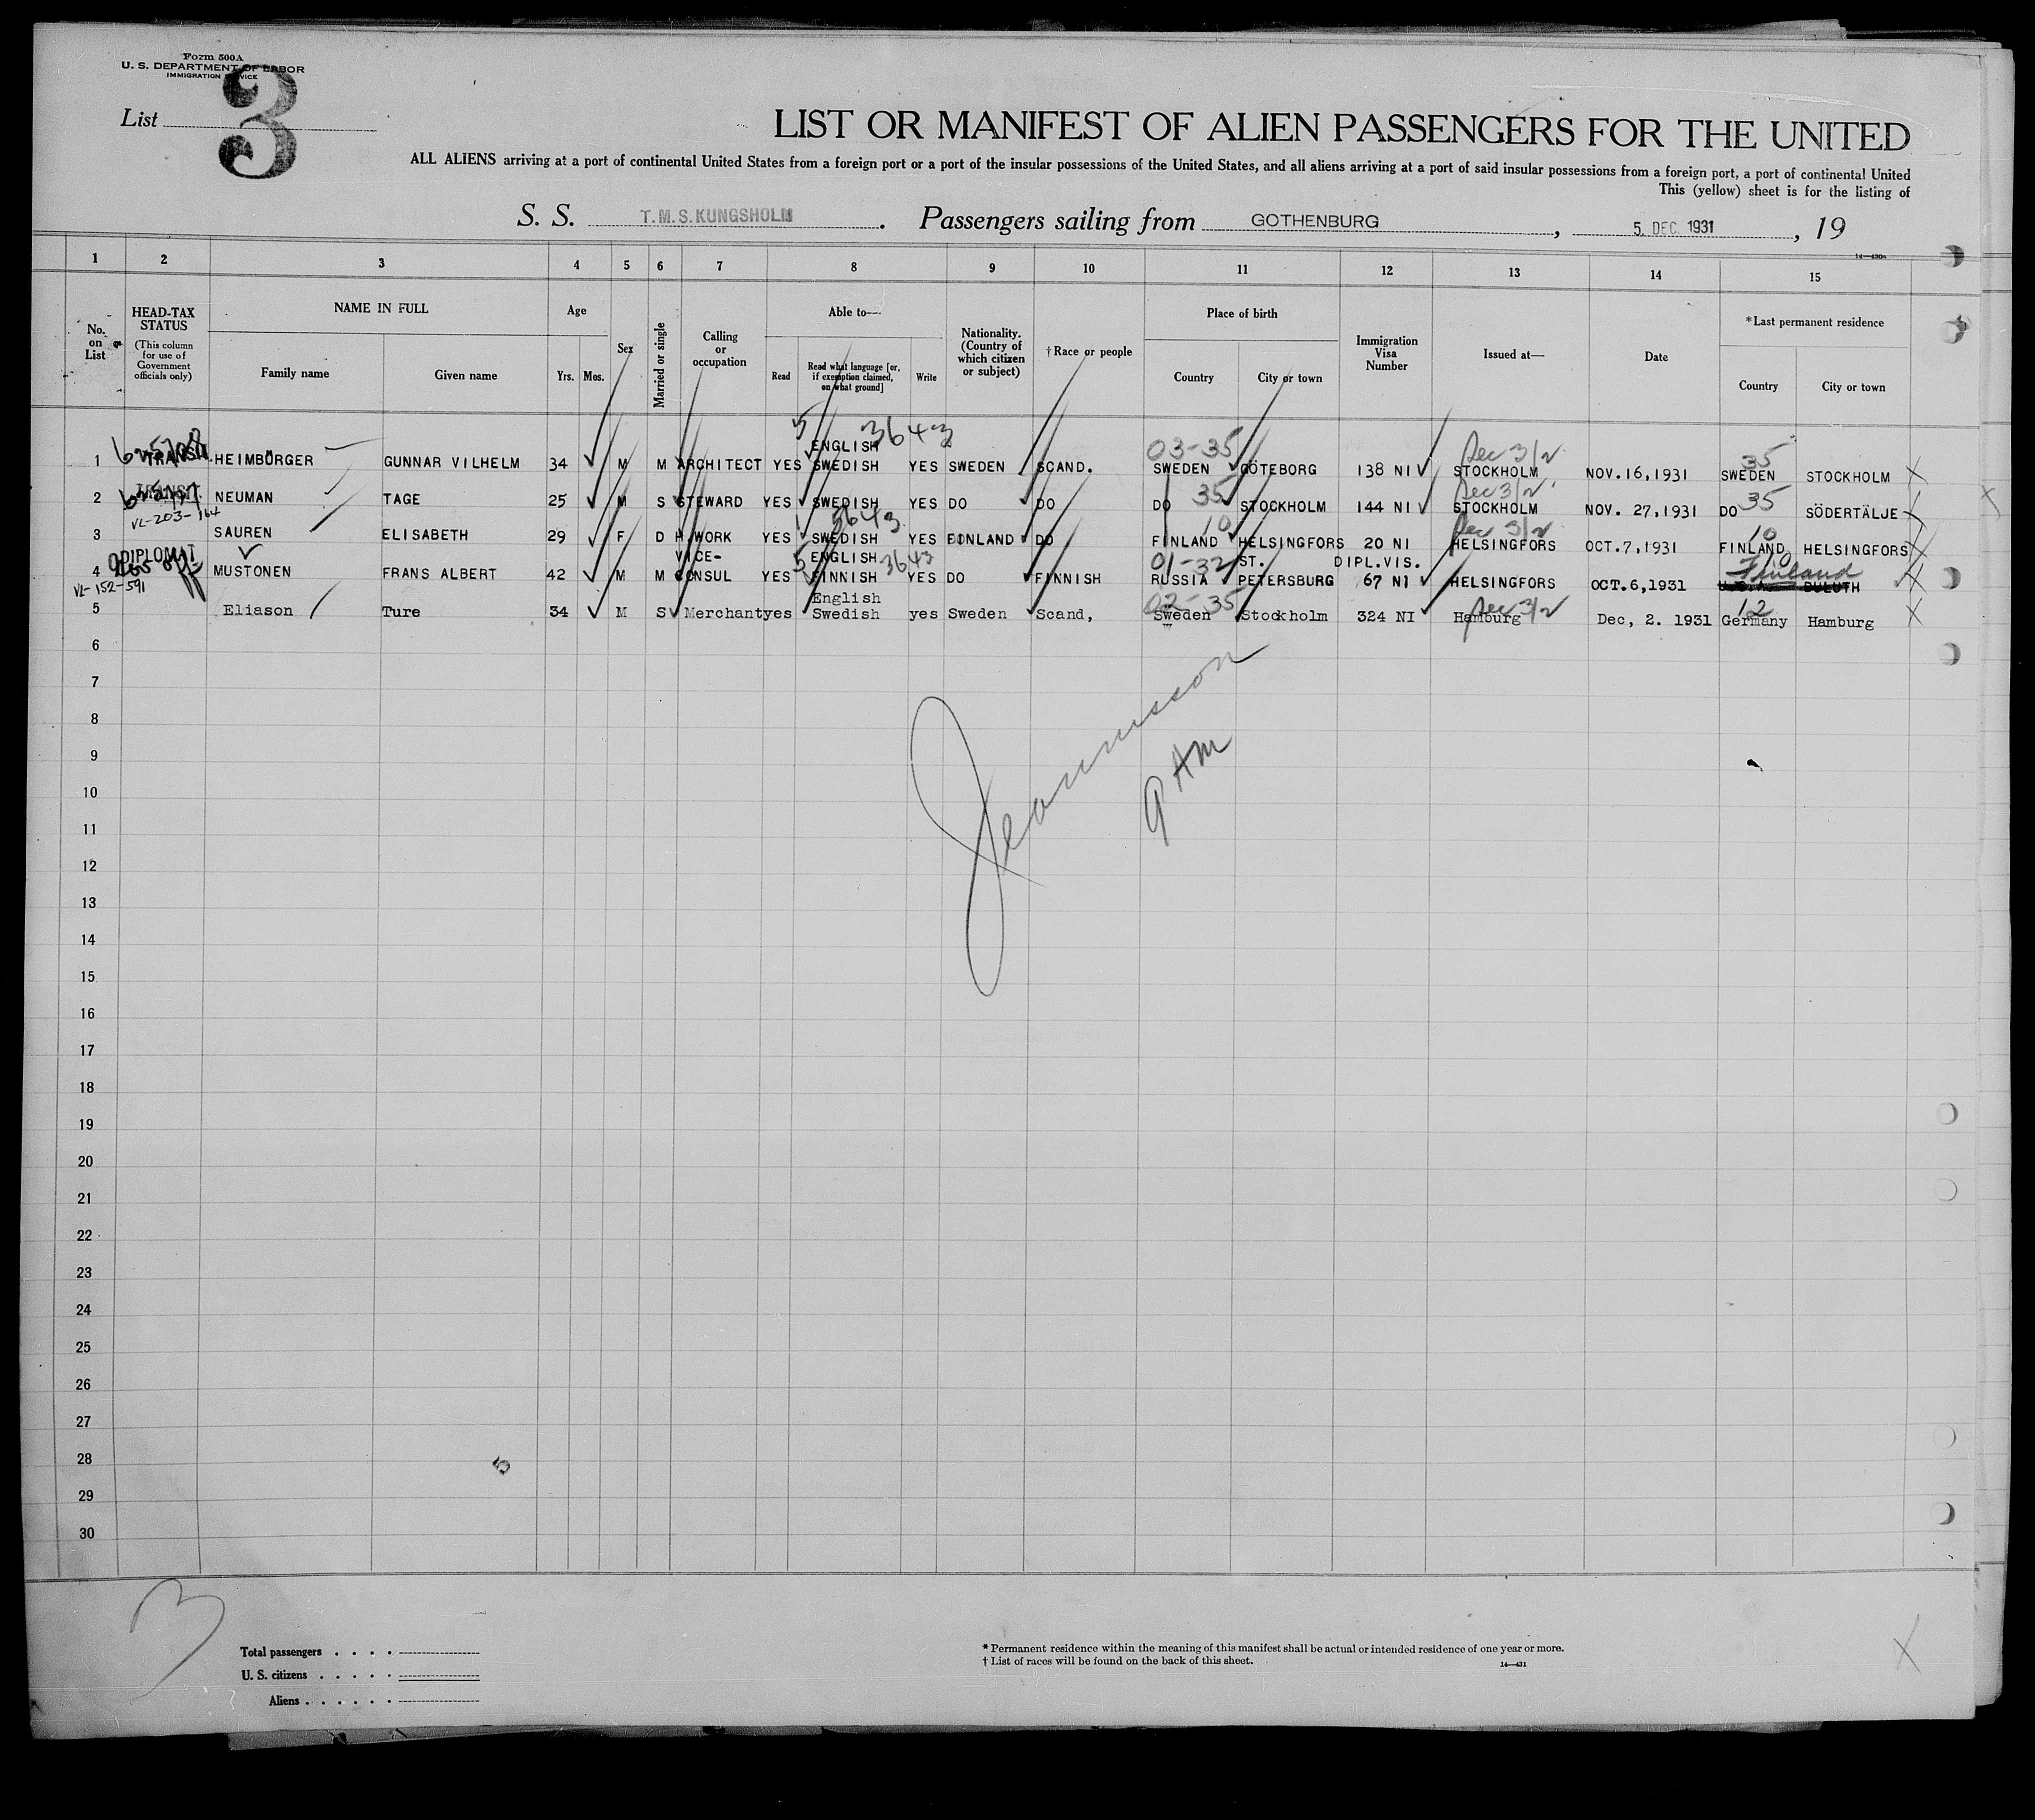 Form 500A
U. S. DEPARTMENT OF LABOR
IMMIGRATION SERVICE
List 3
LIST OR MANIFEST OF ALIEN PASSENGERS FOR THE UNITED
ALL ALIENS arriving at a port of continental United States from a foreign port or a port of the insular possessions of the United States, and all aliens arriving at a port of said insular possessions from a foreign port, a port of continental United
This (yellow) sheet is for the listing of
S. S. T.M.S.KUNGSHOLM. Passengers sailing from GOTHENBURG, 5. DEC. 1931, 19
14—430a
1 2 3 4 5 6 7 8 9 10 11 12 13 14 15
No. on List
HEAD-TAX STATUS
(This column for use of Government officials only)
NAME IN FULL
Family name
Given name
Age
Yrs. Mos.
Sex
Married or single
Calling or occupation
Able to—
Read
Read what language [or, if exemption claimed, on what ground]
Write
Nationality. (Country of which citizen or subject)
†Race or people
Place of birth
Country
City or town
Immigration Visa Number
Issued at—
Date
*Last permanent residence
Country
City or town
5 3643 03-35 Dec 3/2 35
1 TRANSIT HEIMBÜRGER GUNNAR VILHELM 34 M M ARCHITECT YES ENGLISH SWEDISH YES SWEDEN SCAND. SWEDEN GÖTEBORG 138 NI STOCKHOLM NOV.16,1931 SWEDEN STOCKHOLM X
35 Dec 3/2 35
2 TRANSIT NEUMAN TAGE 25 M S STEWARD YES SWEDISH YES DO DO DO STOCKHOLM 144 NI STOCKHOLM NOV. 27,1931 DO SÖDERTÄLJE X
VL-203-164 3643 10 Dec 3/2 10
3 SAUREN ELISABETH 29 F D H.WORK YES SWEDISH YES FINLAND DO FINLAND HELSINGFORS 20 NI HELSINGFORS OCT.7,1931 FINLAND HELSINGFORS X
5 3643 01-32 10 Finland
4 DIPLOMAT MUSTONEN FRANS ALBERT 42 M M VICE-CONSUL YES ENGLISH FINNISH YES DO FINNISH RUSSIA ST. PETERSBURG DIPL.VIS. 67 NI HELSINGFORS OCT.6,1931 U.S.A. DULUTH X
VL-152-591 02-35 Dec 3/2 12
5 Eliason Ture 34 M S Merchant yes English Swedish yes Sweden Scand, Sweden Stockholm 324 NI Hamburg Dec, 2. 1931 Germany Hamburg X
6
7
8
9
9 AM
10
11
12
13
14
15
16
17
18
19
20
21
22
23
24
25
26
27
28
5
29
30
3
Total passengers . . . .
U. S. citizens . . . . .
Aliens . . . . . .
* Permanent residence within the meaning of this manifest shall be actual or intended residence of one year or more.
† List of races will be found on the back of this sheet.
14—431
X